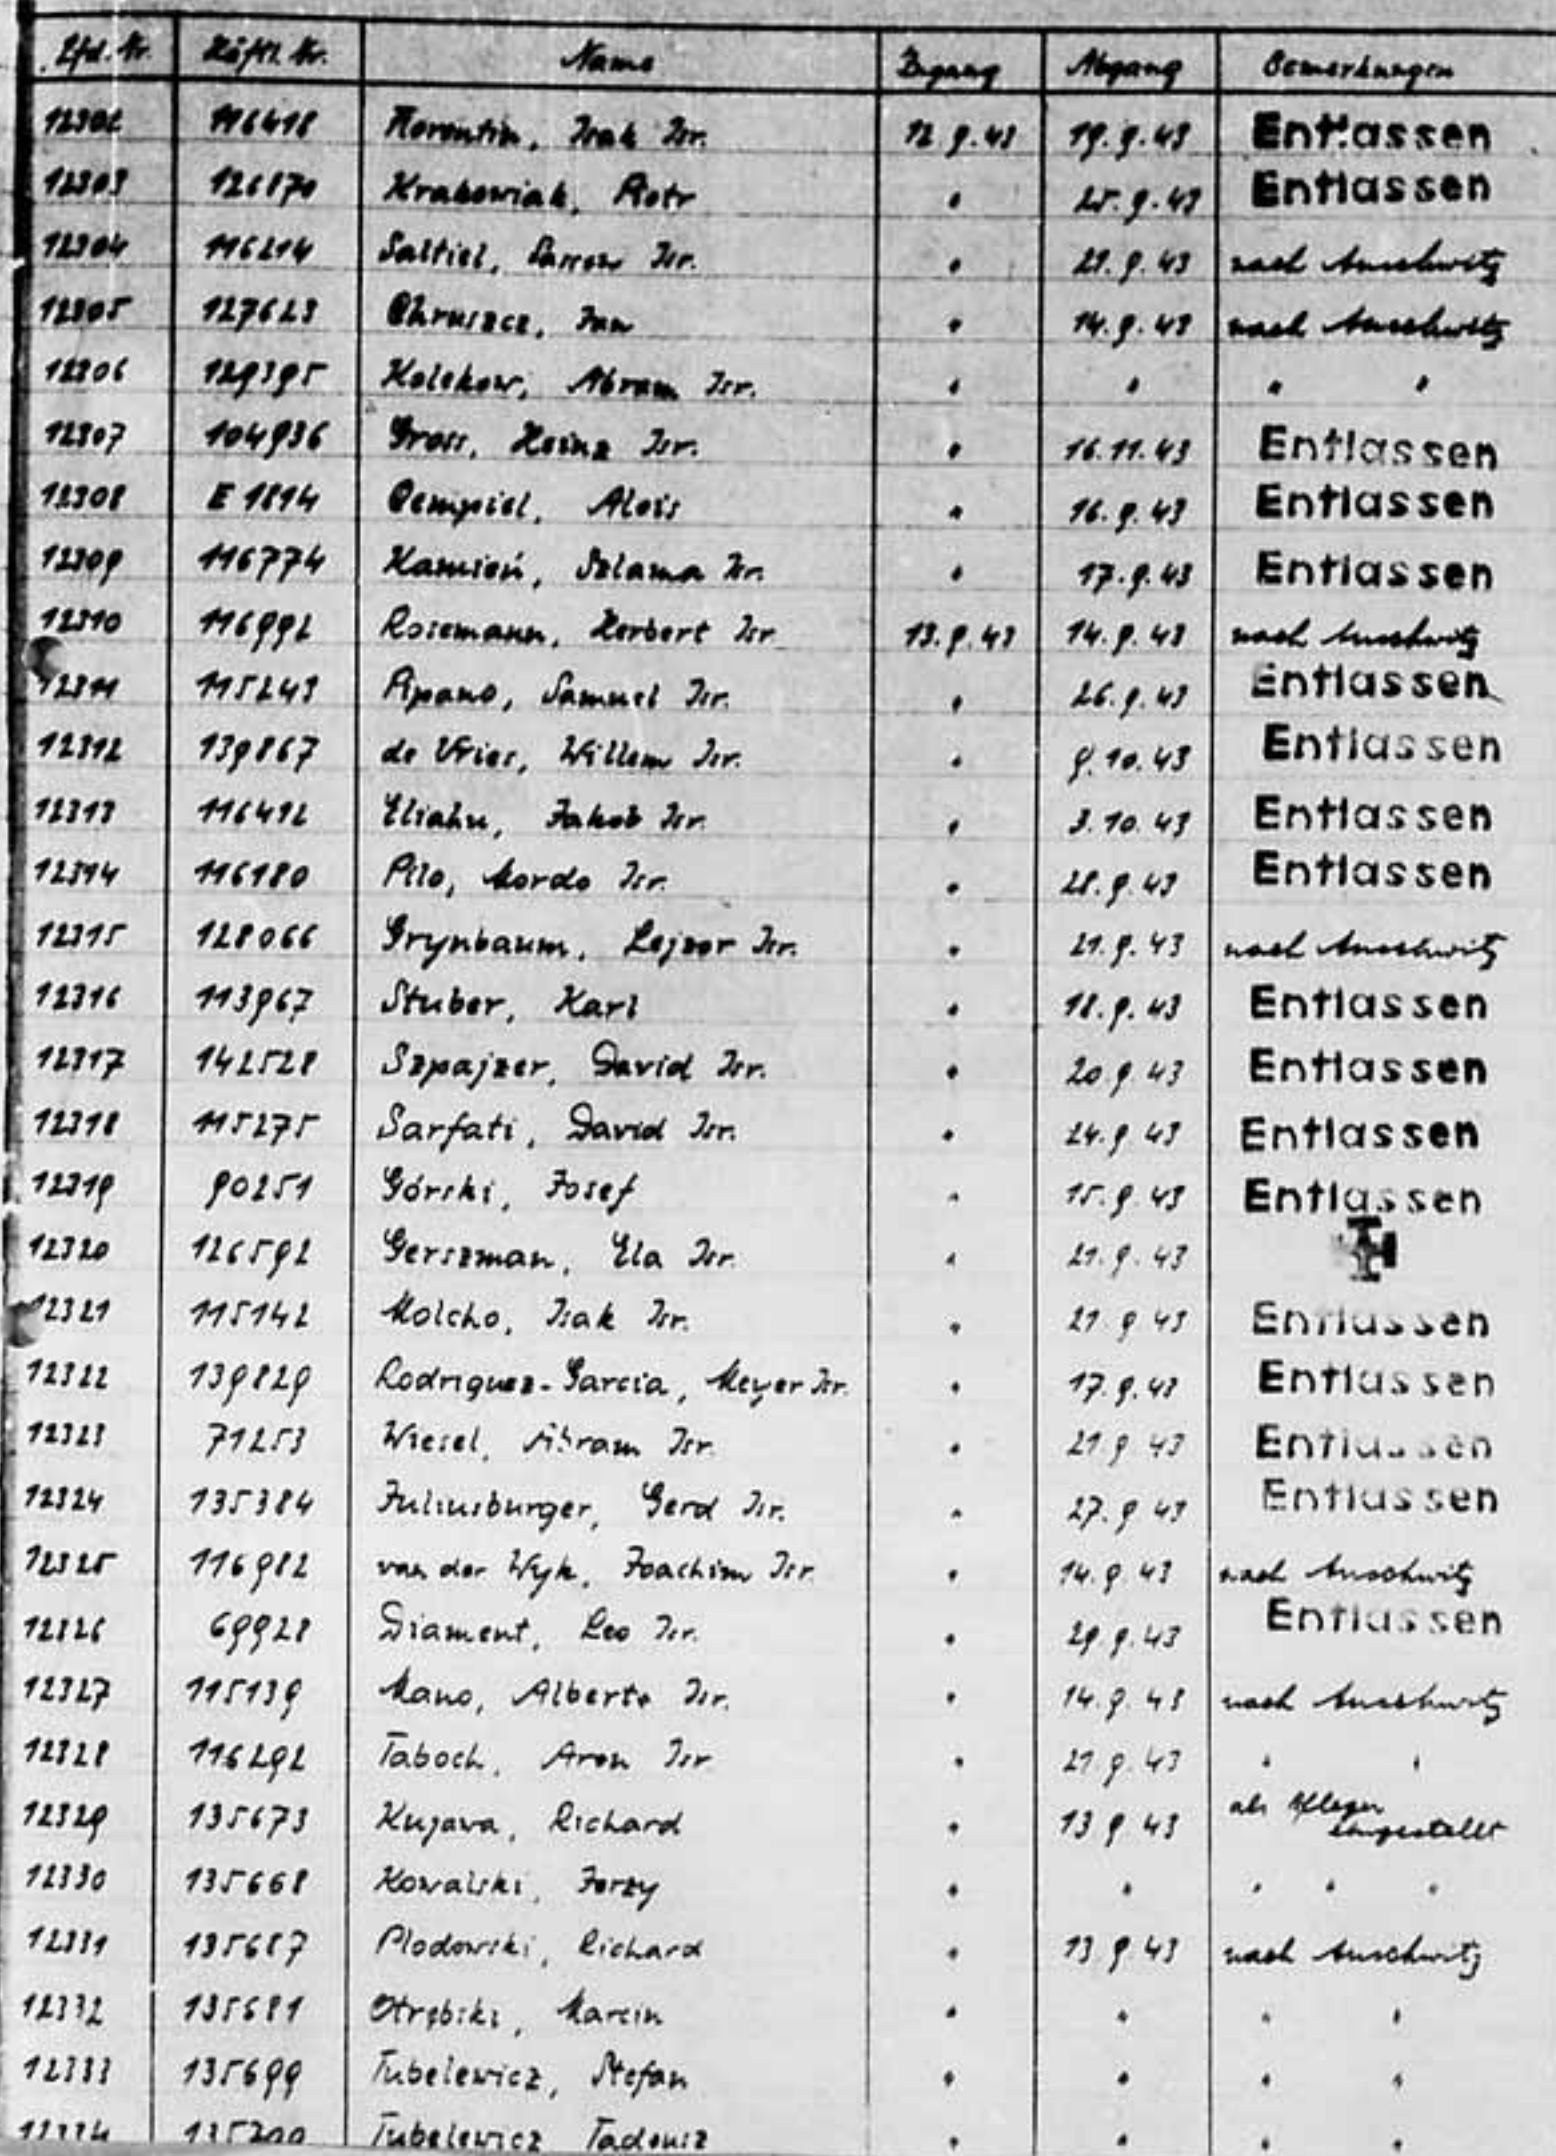 Lfd. Nr. Häftl. Nr. Name Zugang Abgang Bemerkungen
12302 116418 Florentin, Isak Isr. 12.9.43 19.9.43 Entlassen
12303 126870 Krakowiak, Piotr " 25.9.43 Entlassen
12304 116214 Saltiel, Isr. " 21.9.43 nach Auschwitz
12305 127623 Chruszcz, Jan " 14.9.43 nach Auschwitz
12306 129395 Abram Isr. " " " "
12307 104936 Gross, Heinz Isr. " 16.11.43 Entlassen
12308 E 1814 Cempiel, Alois " 16.9.43 Entlassen
12309 116774 Kamień, Szlama Isr. " 17.9.43 Entlassen
12310 116992 Rosemann, Herbert Isr. 13.9.43 14.9.43 nach Auschwitz
12311 115243 Pipano, Samuel Isr. " 26.9.43 Entlassen
12312 139867 de Vries, Willem Isr. " 9.10.43 Entlassen
12313 116412 Eliahu, Jakob Isr. " 3.10.43 Entlassen
12314 116180 Pilo, Mordo Isr. " 28.9.43 Entlassen
12315 128066 Grynbaum, Lejzor Isr. " 21.9.43 nach Auschwitz
12316 113967 Stuber, Karl " 18.9.43 Entlassen
12317 142528 Szpajzer, David Isr. " 20.9.43 Entlassen
12318 115275 Sarfati, David Isr. " 24.9.43 Entlassen
12319 90251 Górski, Josef " 15.9.43 Entlassen
12320 126592 Gerszman, Ela Isr. " 21.9.43
12321 115142 Molcho, Isak Isr. " 21.9.43 Entlassen
12322 139829 Rodriguez-Garcia, Meyer Isr. " 17.9.43 Entlassen
12323 71253 Wiesel, Abram Isr. " 21.9.43 Entlassen
12324 135384 Juliusburger, Gerd Isr. " 27.9.43 Entlassen
12325 116982 van der Wyk, Joachim Isr. " 14.9.43 nach Auschwitz
12326 69928 Diament, Leo Isr. " 29.9.43 Entlassen
12327 115139 Mano, Alberto Isr. " 14.9.43 nach Auschwitz
12328 116292 Taboch, Aron Isr " 21.9.43 " "
12329 135673 Kujawa, Richard " 13.9.43 als Pfleger
eingestellt
12330 135668 Kowalski, Jerzy " " " " "
12331 135687 Plodowski, Richard " 13.9.43 nach Auschwitz
12332 135681 Otrębski, Marcin " " " "
12333 135699 Tubelewicz, Stefan " " " "
12334 Tubelewicz Tadeusz " " " "